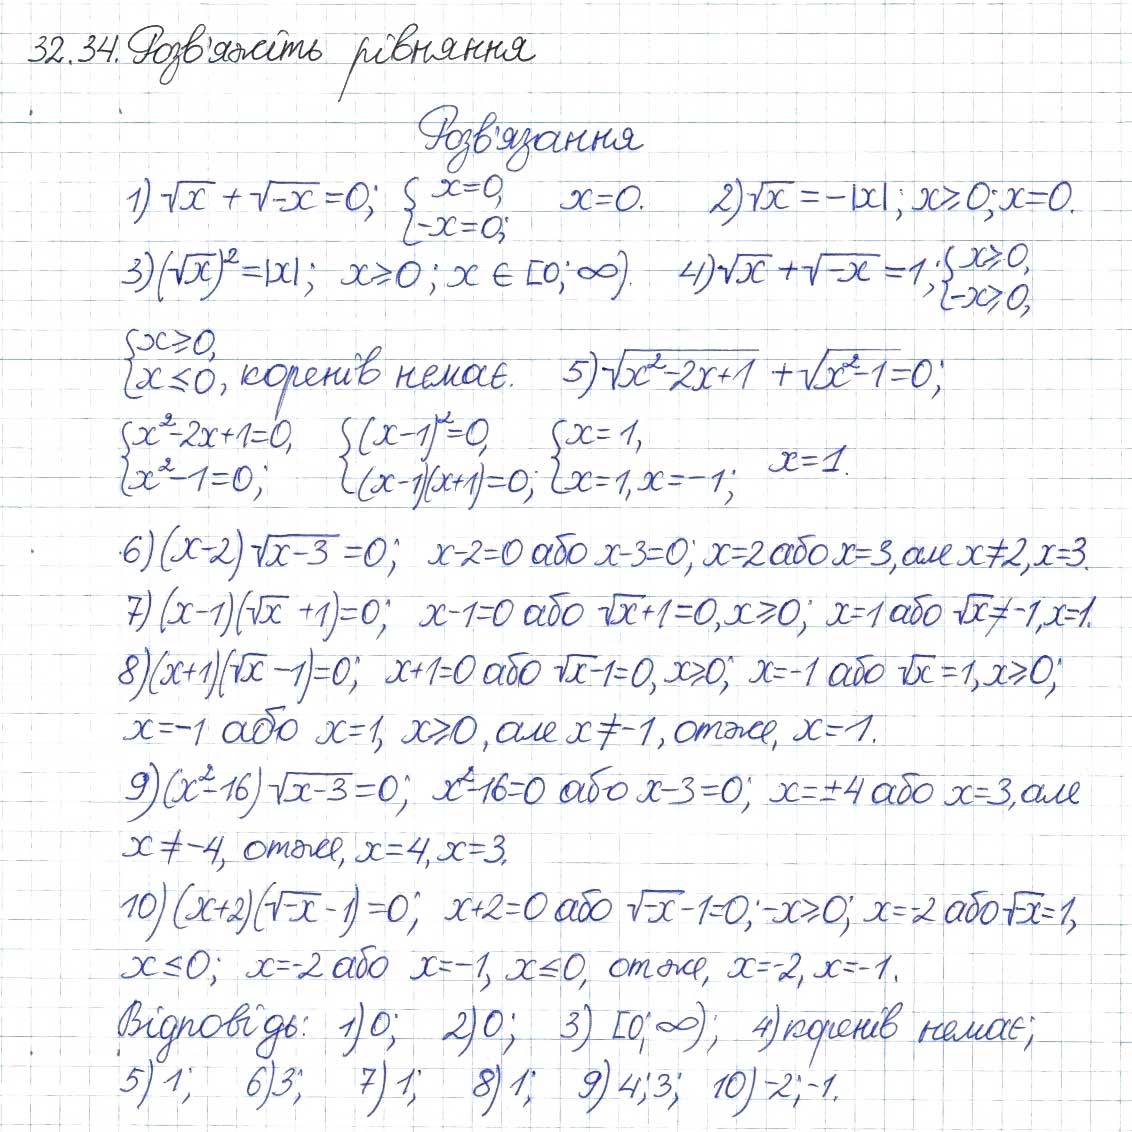 32.34. Розв'яжіть рівняння
Розв'язання
1) √x + √-x = 0; { x=0, -x=0; x=0. 2) √x = -|x|; x≥0; x=0.
3) (√x)² = |x|; x≥0; x ∈ [0; ∞). 4) √x + √-x = 1; { x≥0, -x≥0,
{ x≥0, x≤0, коренів немає. 5) √x²-2x+1 + √x²-1 = 0;
{ x²-2x+1=0, x²-1=0; { (x-1)²=0, (x-1)(x+1)=0; { x=1, x=1, x=-1; x=1.
6) (x-2)√x-3 = 0; x-2=0 або x-3=0; x=2 або x=3, але x≠2, x=3.
7) (x-1)(√x +1)=0; x-1=0 або √x+1=0, x≥0; x=1 або √x≠-1, x=1.
8) (x+1)(√x -1)=0; x+1=0 або √x-1=0, x≥0; x=-1 або √x=1, x≥0;
x=-1 або x=1, x≥0, але x≠-1, отже, x=1.
9) (x²-16)√x-3=0; x²-16=0 або x-3=0; x=±4 або x=3, але
x≠-4, отже, x=4, x=3.
10) (x+2)(√-x -1)=0; x+2=0 або √-x -1=0; -x≥0; x=-2 або √-x=1,
x≤0; x=-2 або x=-1, x≤0, отже, x=-2, x=-1.
Відповідь: 1) 0; 2) 0; 3) [0; ∞); 4) коренів немає;
5) 1; 6) 3; 7) 1; 8) 1; 9) 4; 3; 10) -2; -1.